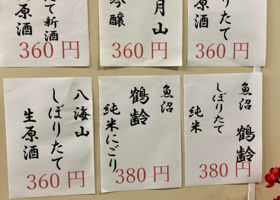 しぼりたて
生原酒
360円
月山
吟醸
360円
て新酒
原酒
360円
魚沼
鶴齢
しぼりたて
純米
380円
魚沼
鶴齢
純米にごり
380円
八海山
しぼりたて
生原酒
360円